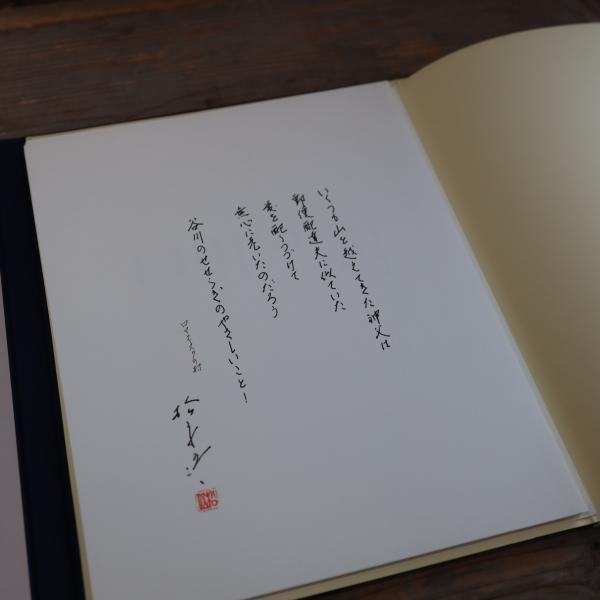 いくつも山を越えてきた神父は
郵便配達夫に似ていた
愛を配りつづけて
無心に老いたのだろう
谷川のせせらぎのやさしいこと！
ロマネスクの村